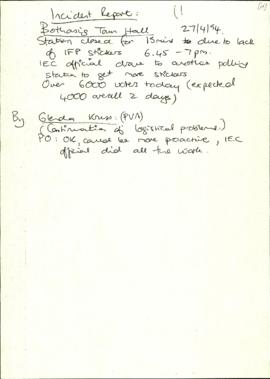 Incident Report:
Bothasig Town Hall 27/4/94.
Station closed for 15 mins due to lack
of IFP stickers 6.45 – 7pm.
IEC official drove to another polling
station to get more stickers
Over 6000 votes today (expected
4000 overall 2 days)
By Glenda Kruss: (PVA)
(Continuation of logistical problems.)
PO: OK, could be more proactive, IEC
official did all the work.